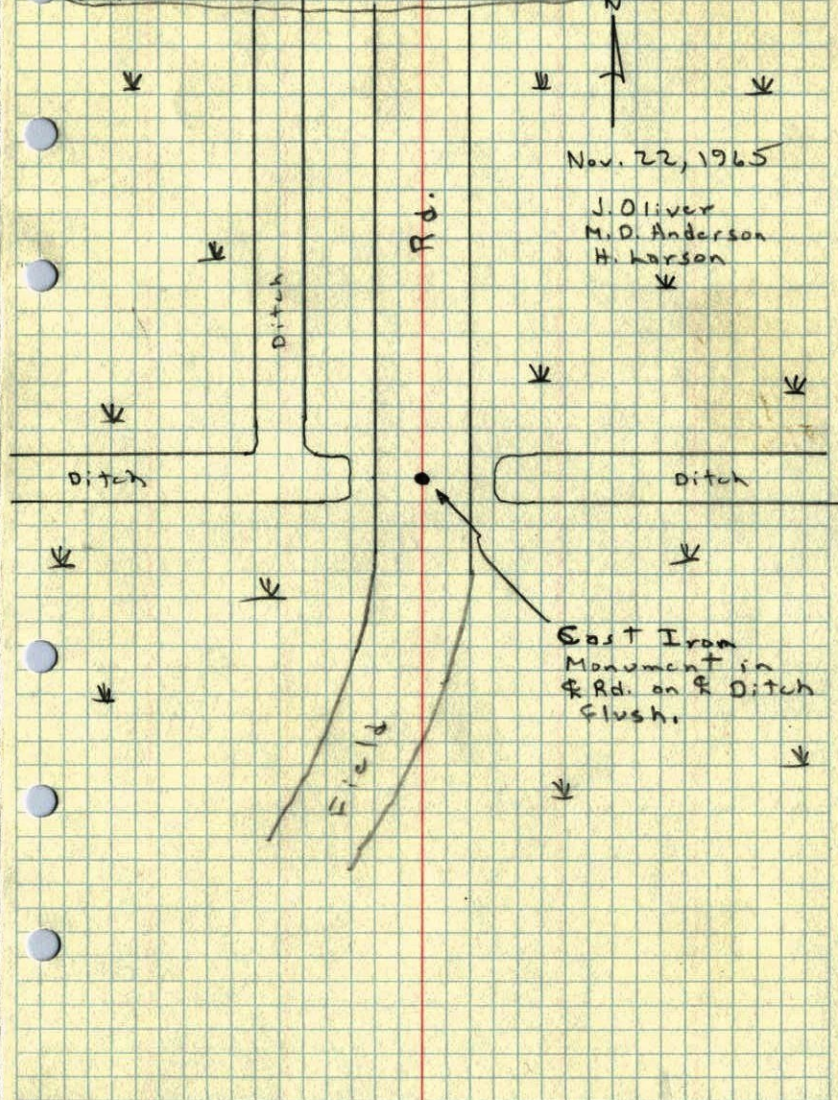 N
Nov. 22, 1965
J. Oliver
M. D. Anderson
H. Larson
Rd.
Ditch
Ditch
Ditch
Cast Iron
Monument in
℄ Rd. on ℄ Ditch
flush.
Field